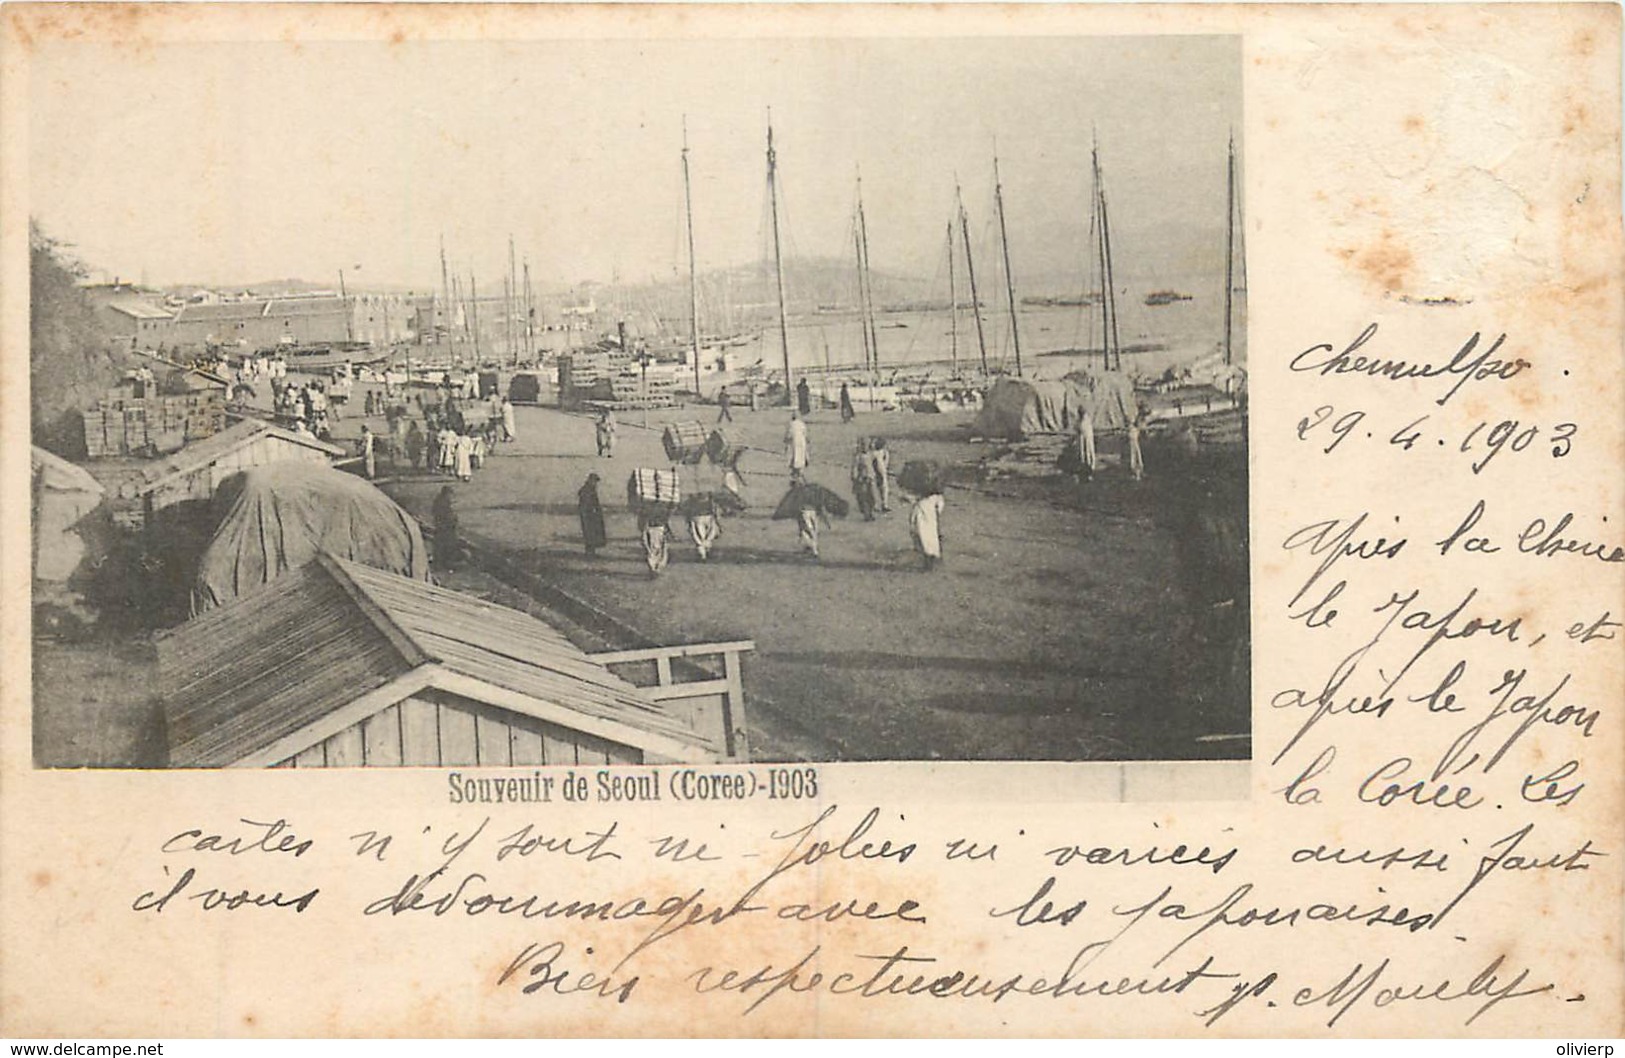 Chemulpo.
29.4.1903
Après la Chine
le Japon, et
après le Japon
la Corée. Les
Souvenir de Seoul (Coree)-1903
cartes n'y sont ni jolies ni variées aussi faut
il vous dédommager avec les japonaises.
Bien respectueusement
www.delcampe.net
olivierp